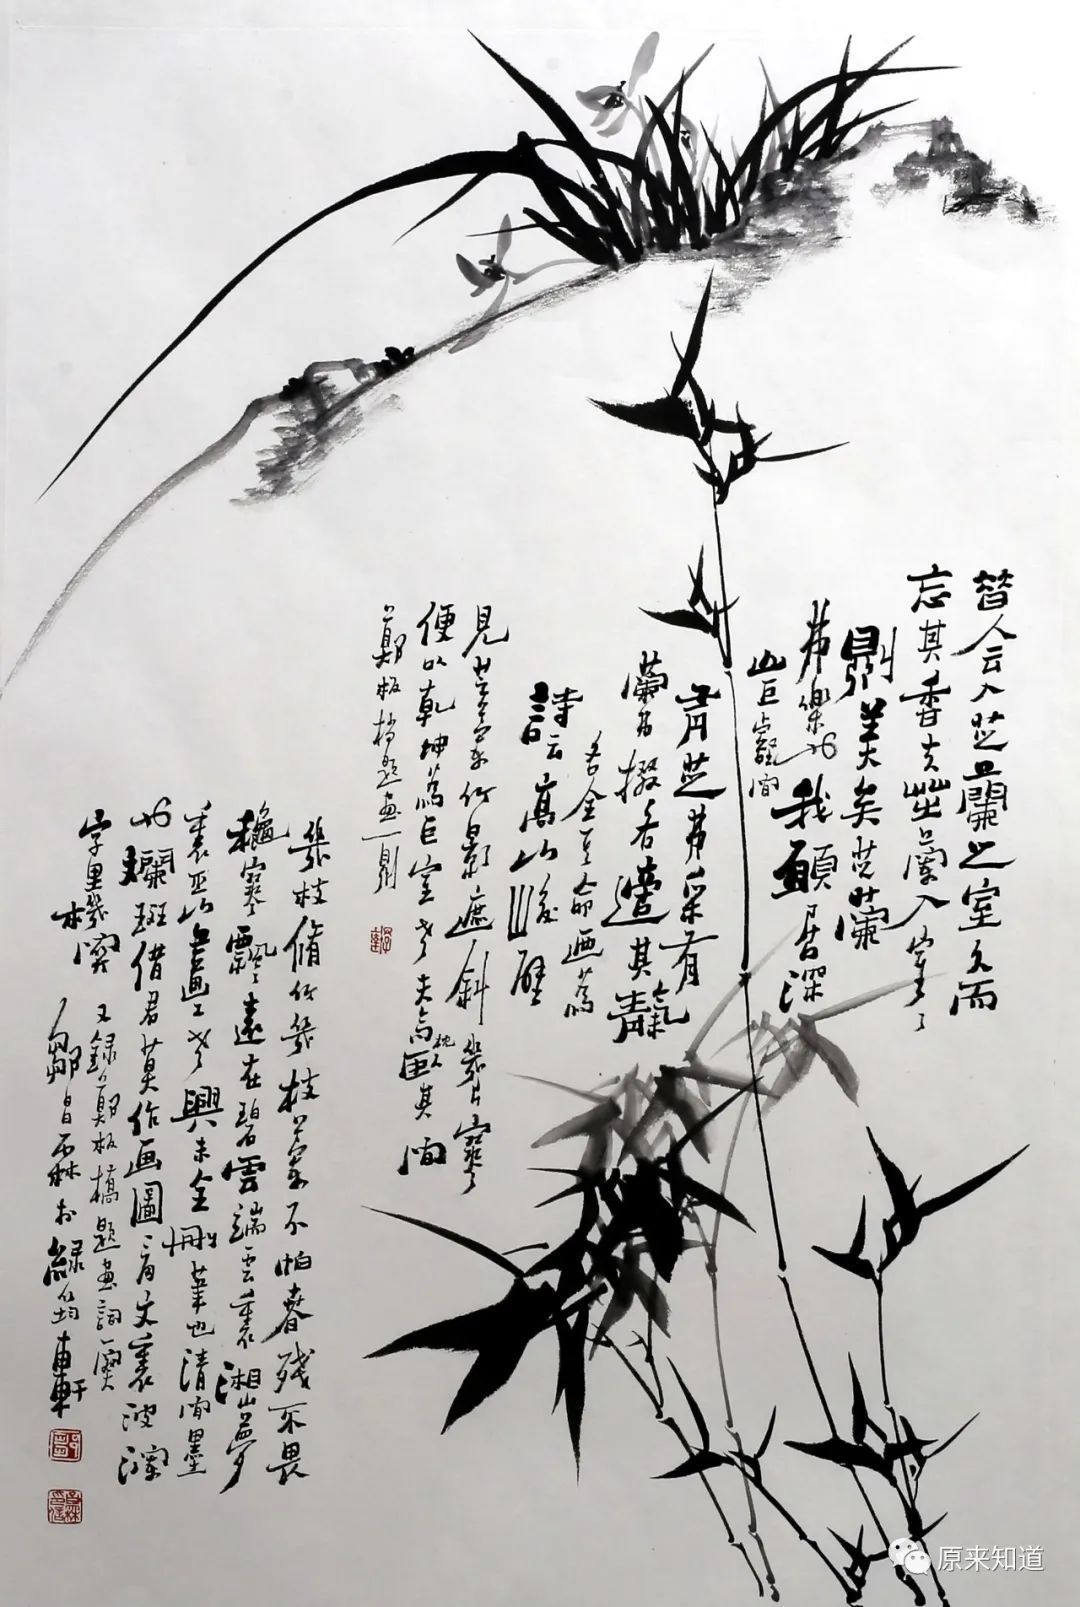 昔人云入芝蘭之室久而
忘其香夫芝蘭入室室
則美矣芝蘭
弗樂也我願居深
山巨壑間
有芝弗采有
蘭弗掇各適其靝
各全其命画為
詩云高山峻壁
見芝蘭竹影遮斜幾片寒
便以乾坤為巨室老夫高枕臥其間
鄭板橋題畫一則
幾枝脩竹幾枝蘭不怕春殘不畏
穐寒飄飄遠在碧雲端雲裏湘山夢
裏巫山畫工老興未全刪筆也清閒墨
也斕斑借君莫作画圖看文裏波瀾
字里機關 又録鄭板橋題畫詞一闋
鄒昌霖於緑筠軒
原来知道